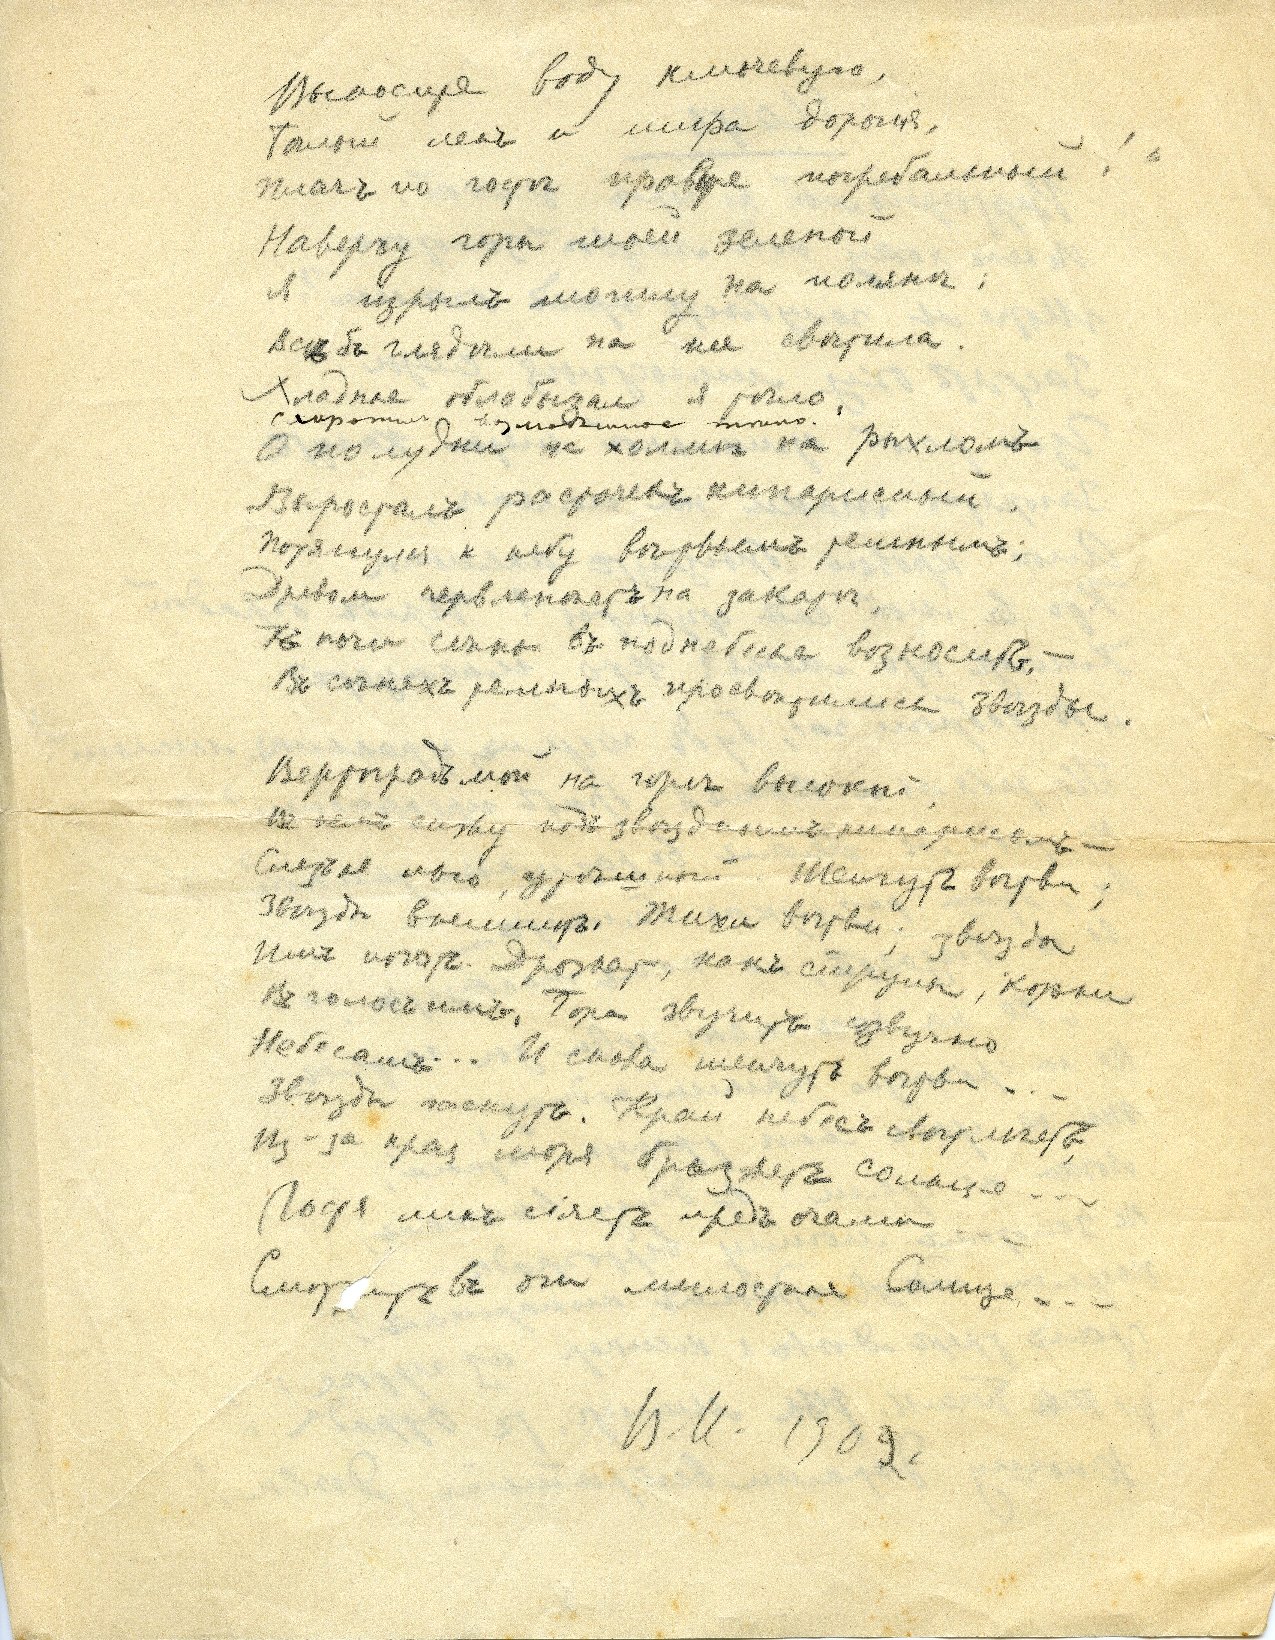 Выносите воду ключевую,
Тонкій ленъ и мира дорогія,
Плачъ по гостѣ правьте погребальный!"
Наверху горы моей зеленой
Я изрылъ могилу на полянѣ:
Всѣ бъ глядѣли на нее свѣтила.
Хладное облобызал я тѣло,
Схоронил возлюбленное тѣло.
О полудни на холмѣ на рыхломъ
Выросталъ росточекъ кипарисный.
Потянулся к небу вѣтвьемъ темнымъ;
Древом червленѣетъ на закатѣ,
Къ ночи сѣнь въ поднебесье возноситъ, —
Въ сѣняхъ темныхъ просвѣтились звѣзды.
Вертоградъ мой на горѣ высокій,
В нем сижу подъ звѣзднымъ кипарисомъ —
Слезы лью, утѣшный. Шепчутъ вѣтви;
Звѣзды внемлютъ. Тихи вѣтви; звѣзды
Имъ поютъ. Дрожат, какъ струны, корни
Въ голосъ имъ. Гора звучитъ созвучно
Небесамъ... И снова шепчутъ вѣтви...
Звѣзды меркнутъ. Край небесъ свѣтлѣетъ,
Из-за края моря брызжетъ солнце...
Гостя ликъ сіяетъ предъ очами
Смотритъ въ очи милостное Солнце...
В. И. 1909.